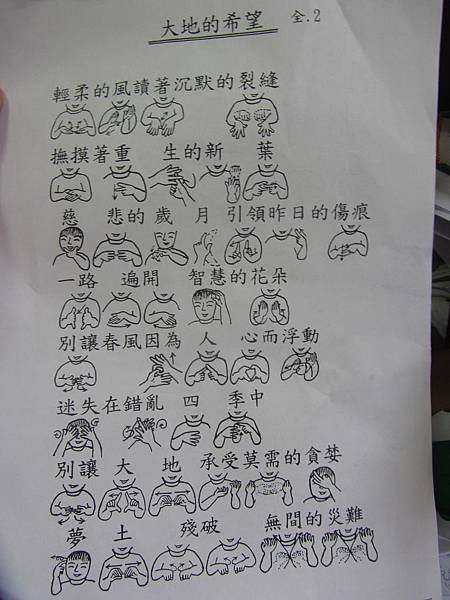 大地的希望 全.2
輕柔的風讀著沉默的裂縫
撫摸著重 生的新 葉
慈 悲的歲 月引領昨日的傷痕
一路 遍開 智慧的花朵
別讓春風因為 人 心而浮動
迷失在錯亂 四 季中
別讓 大 地 承受莫需的貪婪
夢 土 殘破 無間的災難